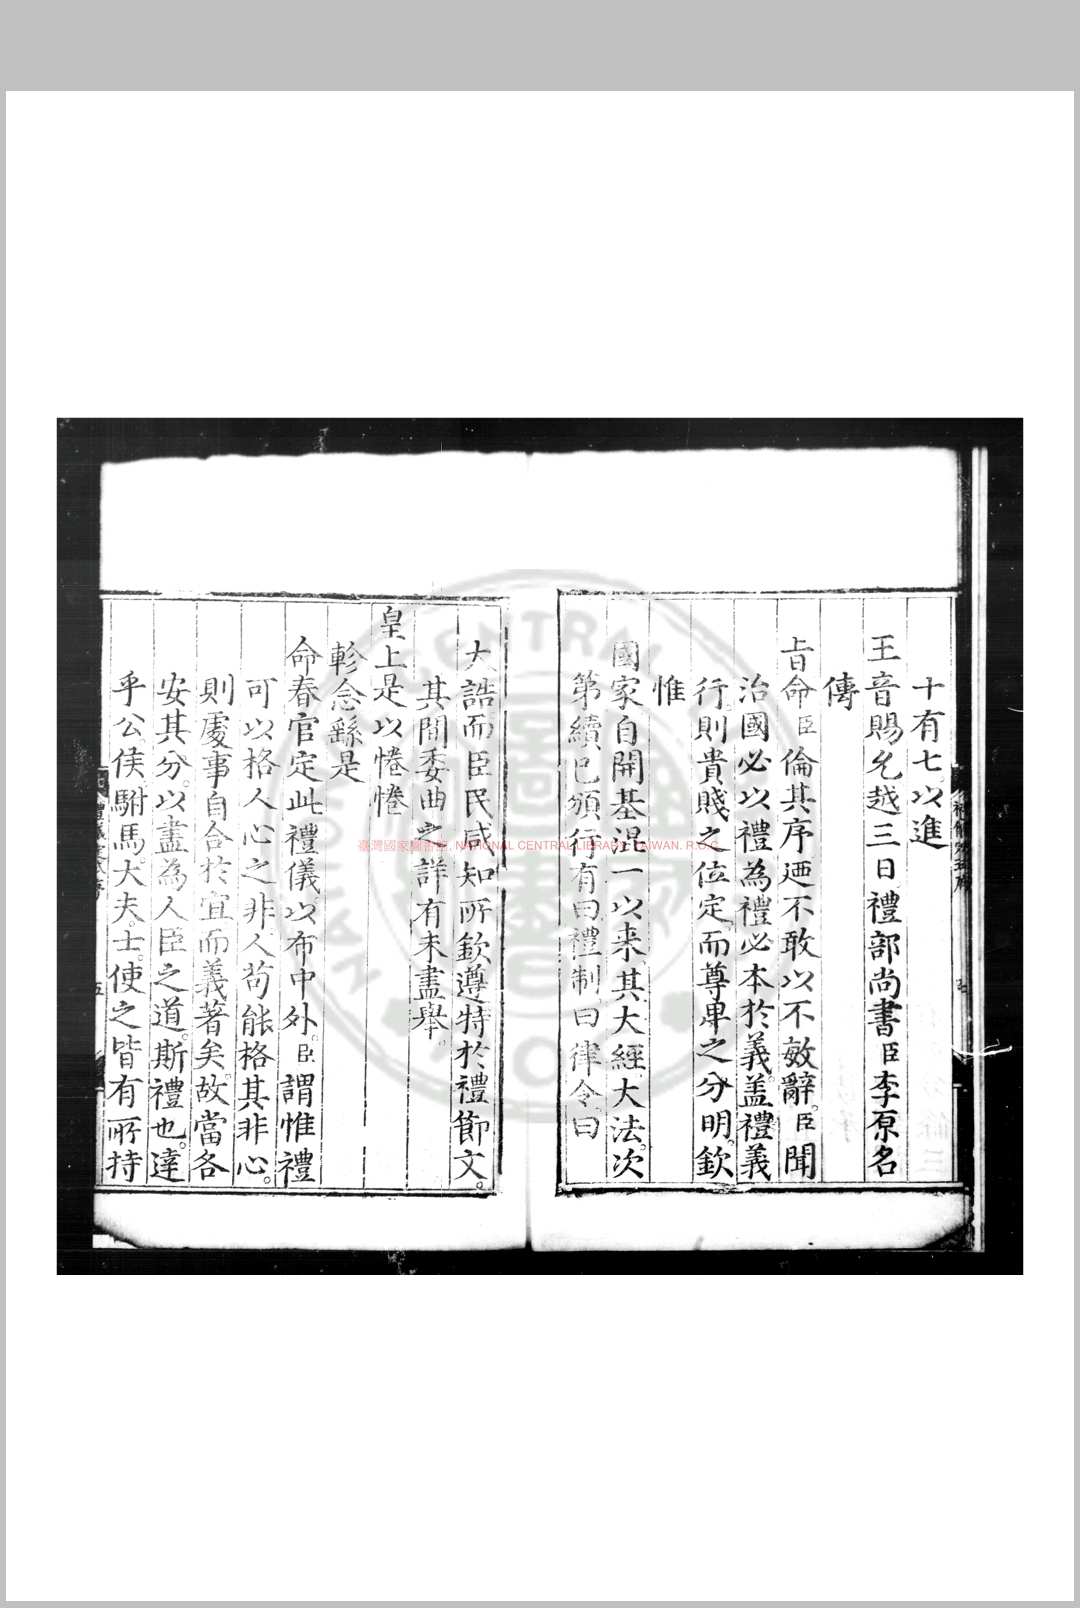 十有七。以進
王音賜允越三日禮部尚書臣李原名
傳
旨命臣倫其序迺不敢以不效辭。臣聞
治國必以禮為禮必本於義蓋禮義
行。則貴賤之位定。而尊卑之分明。欽
惟
國家自開基混一以来其大經大法。次
第續已頒行有曰禮制。曰律令。曰
大誥而臣民咸知所欽遵特於禮節文。
其間委曲之詳有未盡舉。
皇上是以惓惓
軫念繇是
命春官定此禮儀。以布中外。臣謂惟禮
可以格人心之非。人苟能格其非心。
則處事自合於宜而義著矣。故當各
安其分。以盡為人臣之道。斯禮也。達
乎公。侯。駙馬。大夫。士。使之皆有所持
五
臺灣國家圖書館, NATIONAL CENTRAL LIBRARY, TAIWAN. R.O.C